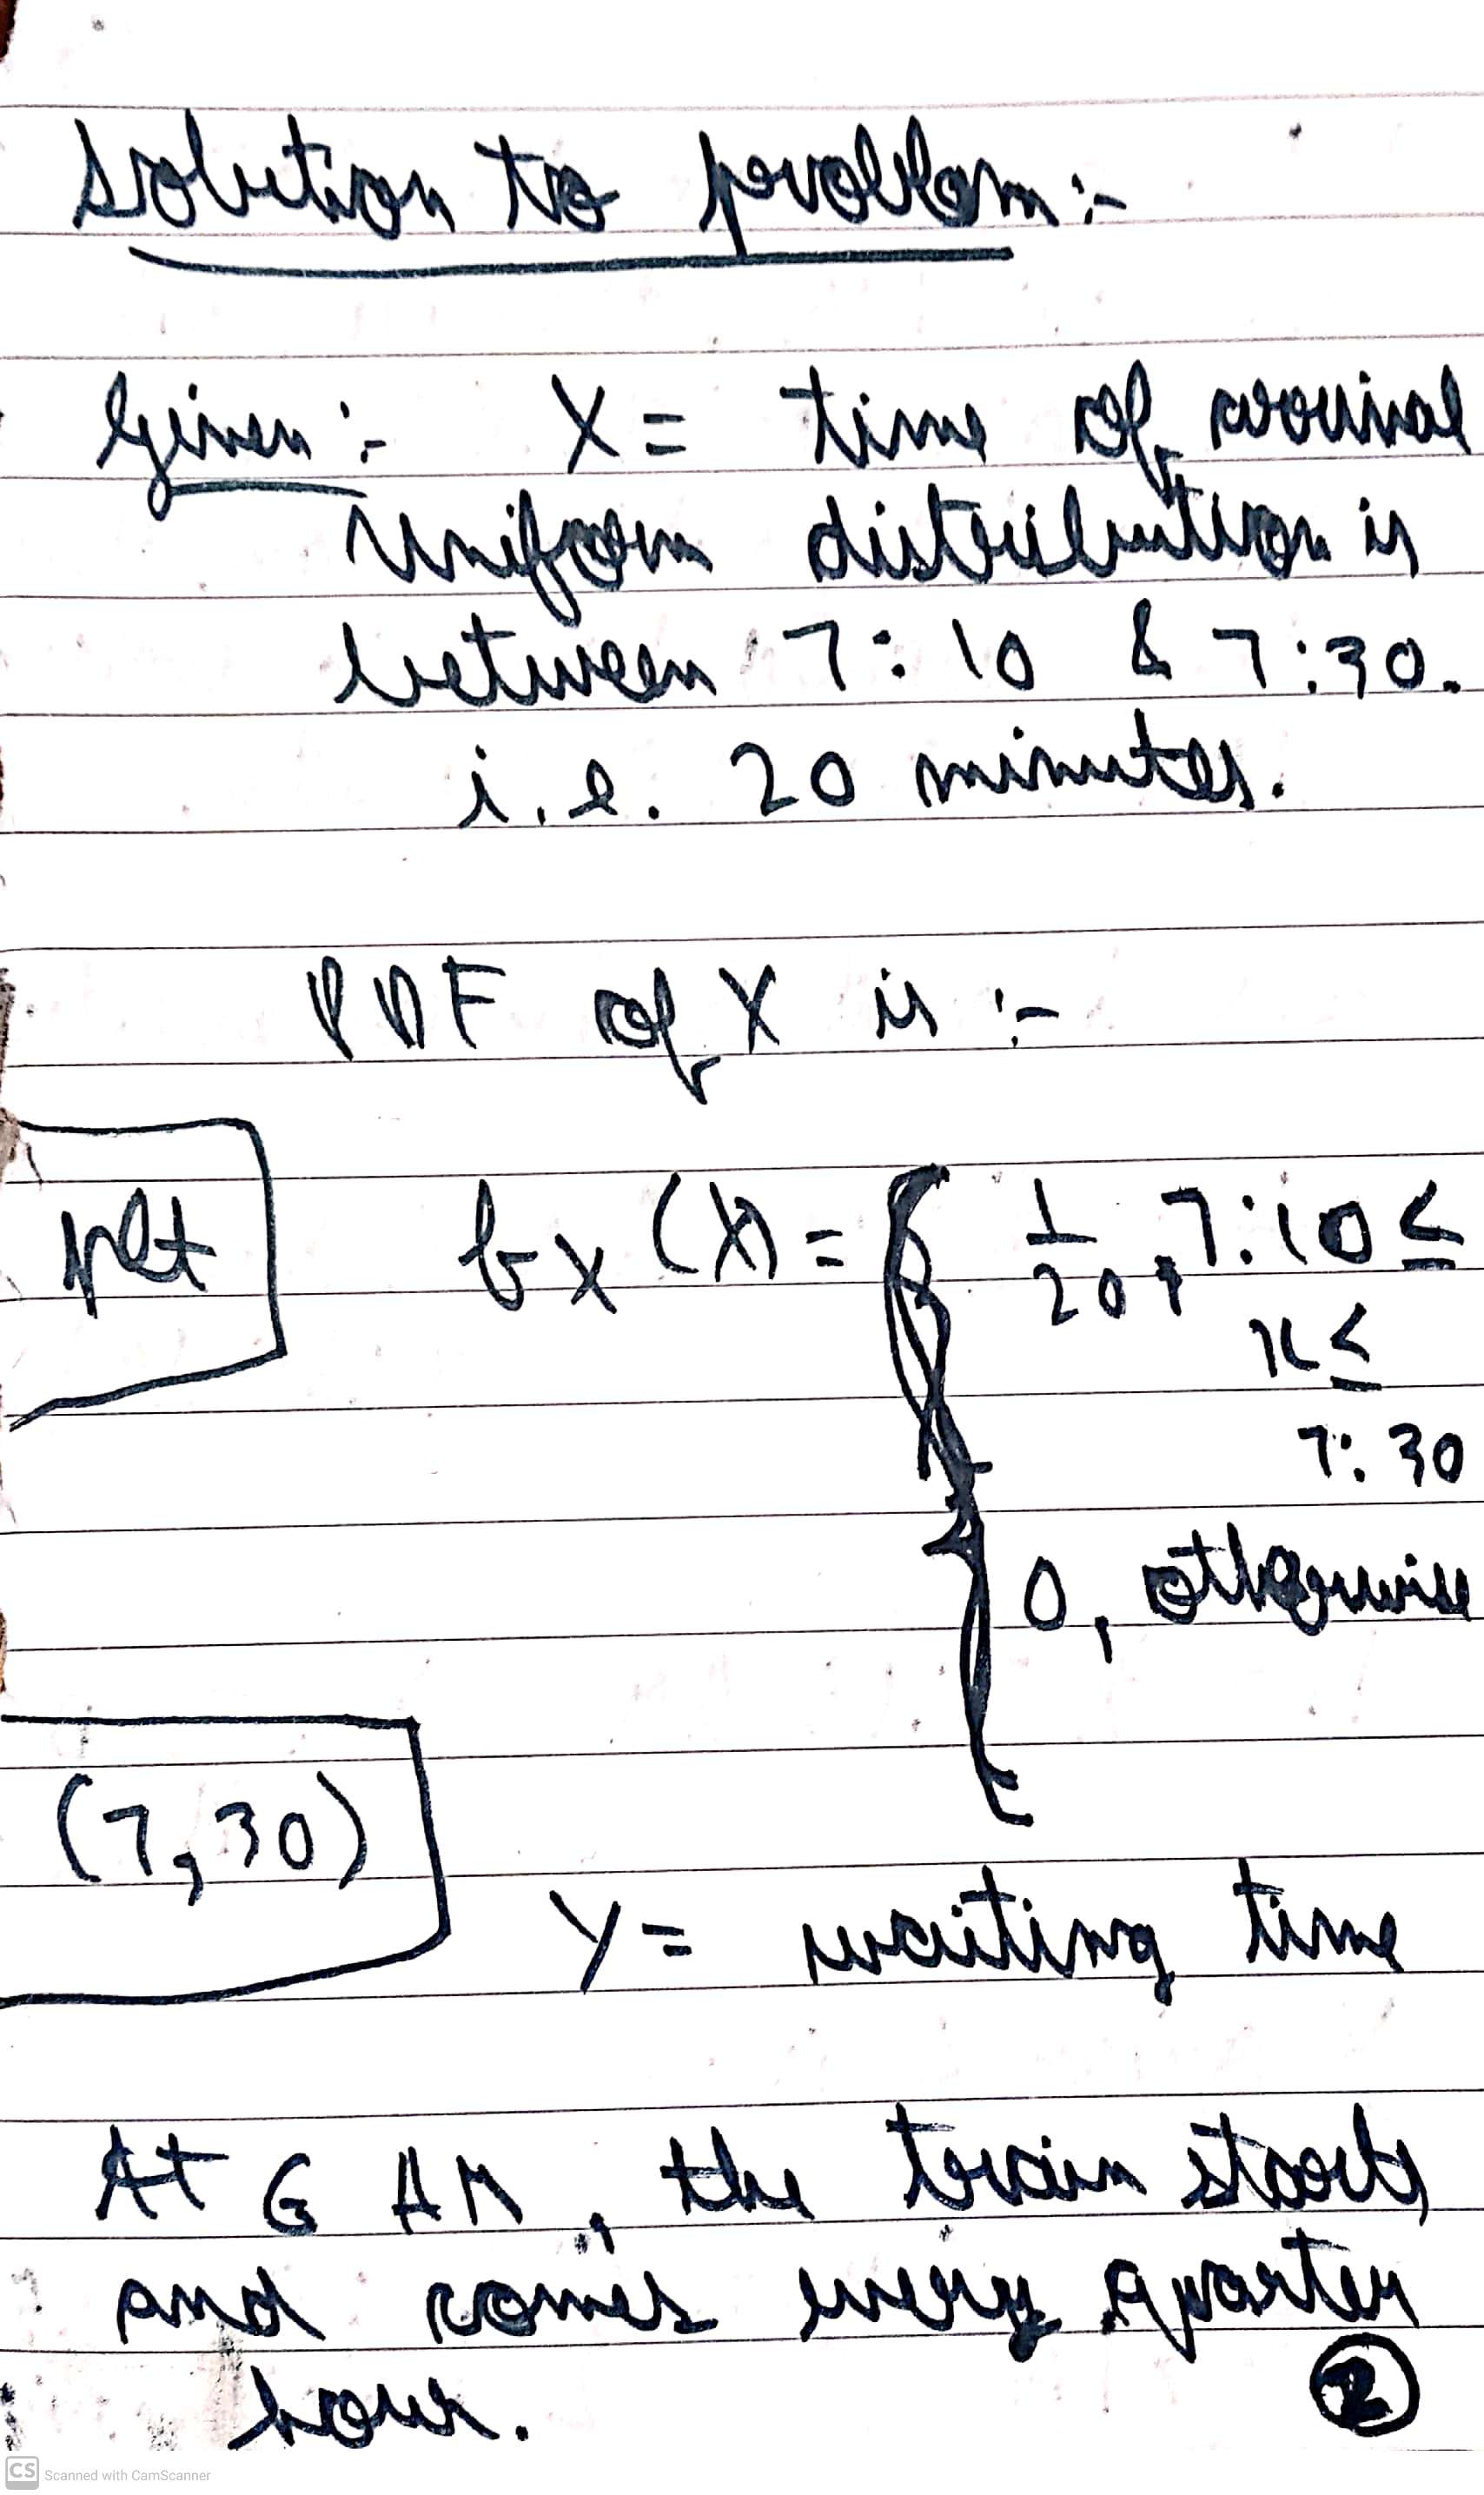 Solution to problem:-
Given:- X = time of arrival
Uniform distribution is
between 7:10 & 7:30.
i.e. 20 minutes.
PDF of X is :-
plt
fx (X) = { 1/20, 7:10 ≤
x ≤
7:30
0, otherwise
(7,30)
Y = waiting time
At 6 AM, the train starts
and comes every quarter
hour.
2
CS Scanned with CamScanner